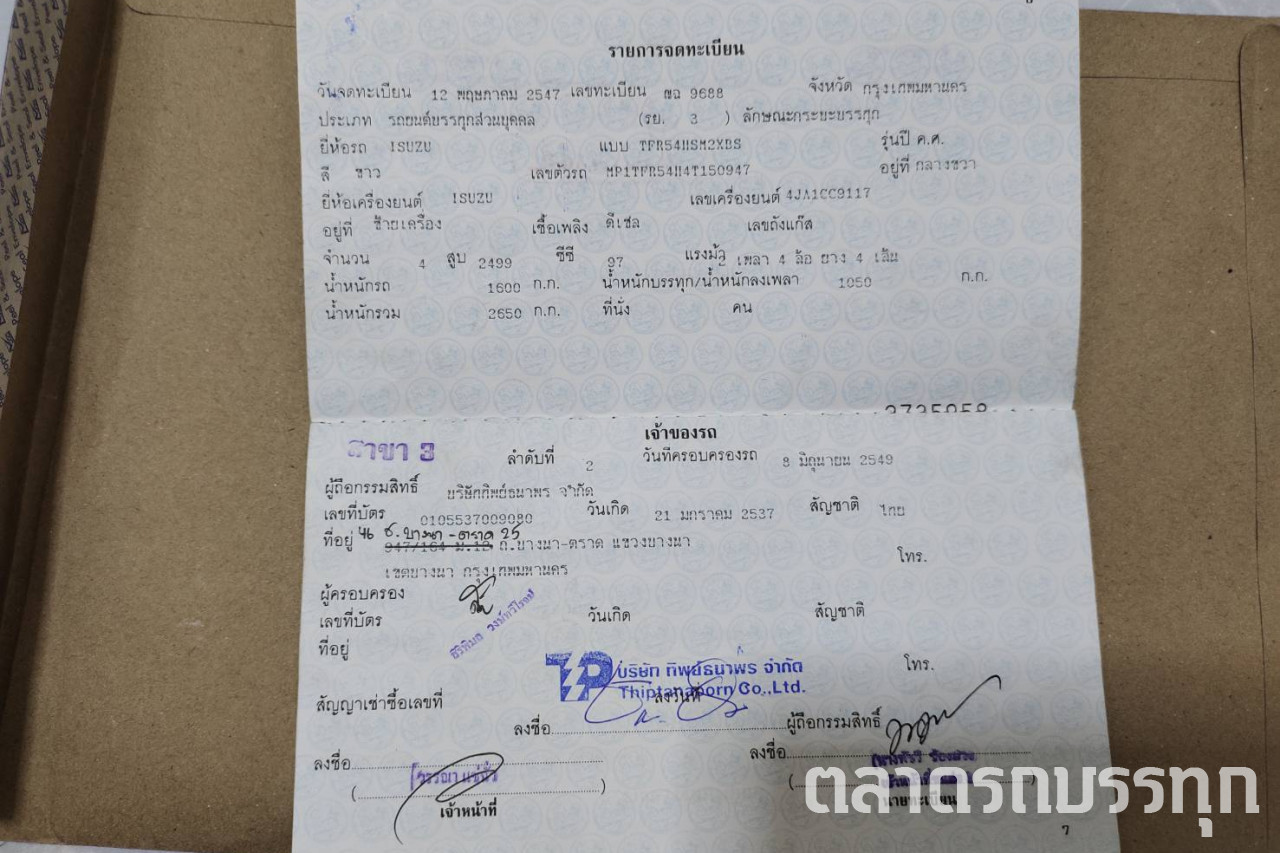 รายการจดทะเบียน
วันจดทะเบียน 12 พฤษภาคม 2547 เลขทะเบียน 9688 จังหวัด กรุงเทพมหานคร
ประเภท รถยนต์บรรทุกส่วนบุคคล (รย. 3 ) ลักษณะกระบะบรรทุก
ยี่ห้อรถ ISUZU แบบ TFR54HSM2XBS รุ่นปี ค.ศ.
สี ขาว เลขตัวรถ MP1TFR54H4T150947 อยู่ที่ กลางขวา
ยี่ห้อเครื่องยนต์ ISUZU เลขเครื่องยนต์ 4JA1CC9117
อยู่ที่ ซ้ายเครื่อง เชื้อเพลิง ดีเซล เลขถังแก๊ส
จำนวน 4 สูบ 2499 ซีซี 97 แรงม้า 2 เพลา 4 ล้อ ยาง 4 เส้น
น้ำหนักรถ 1600 ก.ก. น้ำหนักบรรทุก/น้ำหนักลงเพลา 1050 ก.ก.
น้ำหนักรวม 2650 ก.ก. ที่นั่ง คน
เจ้าของรถ
สาขา 3 ลำดับที่ 2 วันที่ครอบครองรถ 8 มิถุนายน 2549
ผู้ถือกรรมสิทธิ์ บริษัททิพย์ธนาพร จำกัด
เลขที่บัตร 0105537009080 วันเกิด 21 มกราคม 2537 สัญชาติ ไทย
ที่อยู่ 46 ซ.บางนา-ตราด 25
947/164 ม.12 ถ.บางนา-ตราด แขวงบางนา โทร.
เขตบางนา กรุงเทพมหานคร
ผู้ครอบครอง
เลขที่บัตร วันเกิด สัญชาติ
ที่อยู่
บริษัท ทิพย์ธนาพร จำกัด โทร.
Thiptanaporn Co.,Ltd.
สัญญาเช่าซื้อเลขที่ ลงวันที่
ลงชื่อ ผู้ถือกรรมสิทธิ์
ลงชื่อ ลงชื่อ
( ) ( )
เจ้าหน้าที่ นายทะเบียน
7
ตลาดรถบรรทุก